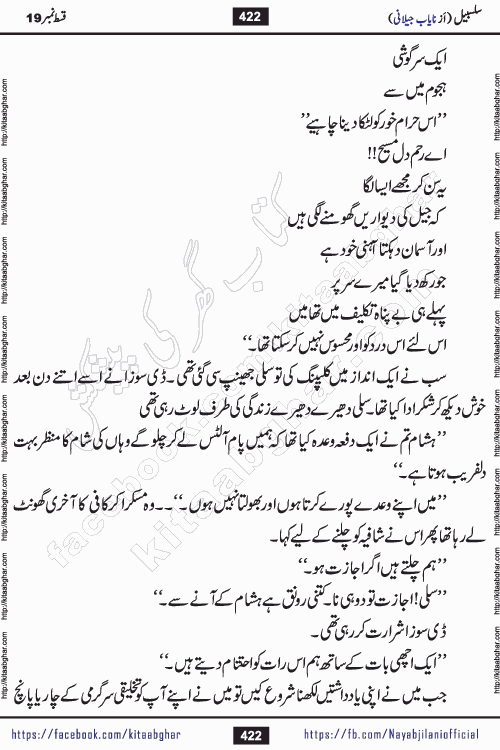 سلسبیل (از نایاب جیلانی)
422
قسط نمبر 19
ایک سرگوشی
ہجوم میں سے
’’اس حرام خور کو لٹکا دینا چاہیے‘‘
اے رحم دل مسیح!!
یہ سن کر مجھے ایسا لگا
کہ جیل کی دیواریں گھومنے لگی ہیں
اور آسمان دہکتا آہنی خود ہے
جو رکھ دیا گیا میرے سر پر
پہلے ہی بے پناہ تکلیف میں تھا میں
اس لئے اس درد کو اور محسوس نہیں کر سکتا تھا۔‘‘
سب نے ایک انداز میں کلیپنگ کی تو سلی جھینپ سی گئی تھی۔ ڈی سوزا نے اسے اتنے دن بعد
خوش دیکھ کر شکر ادا کیا تھا۔ سلی دھیرے دھیرے زندگی کی طرف لوٹ رہی تھی
’’ہشام تم نے ایک دفعہ وعدہ کیا تھا کہ ہمیں پام آلٹس لے کر چلو گے وہاں کی شام کا منظر بہت
دلفریب ہوتا ہے۔‘‘
’’میں اپنے وعدے پورے کرتا ہوں اور بھولتا نہیں ہوں۔‘‘۔۔وہ مسکرا کر کافی کا آخری گھونٹ
لے رہا تھا پھر اس نے شافیہ کو چلنے کے لیے کہا۔
’’ہم چلتے ہیں اگر اجازت ہو۔‘‘
’’سلی! اجازت تو دو ہی نا۔ کتنی رونق ہے ہشام کے آنے سے۔‘‘
ڈی سوزا شرارت کر رہی تھی۔
’’ایک اچھی بات کے ساتھ ہم اس رات کو اختتام دیتے ہیں۔‘‘
جب میں نے اپنی یادداشتیں لکھنا شروع کیں تو میں نے اپنے آپ کو تخلیقی سرگرمی کے چار یا پانچ
http://kitaabghar.com
کتاب گھر کی پیشکش
facebook.com/kitaabghar
kitaabghar.com
https://facebook.com/kitaabghar
422
https://fb.com/Nayabjilaniofficial